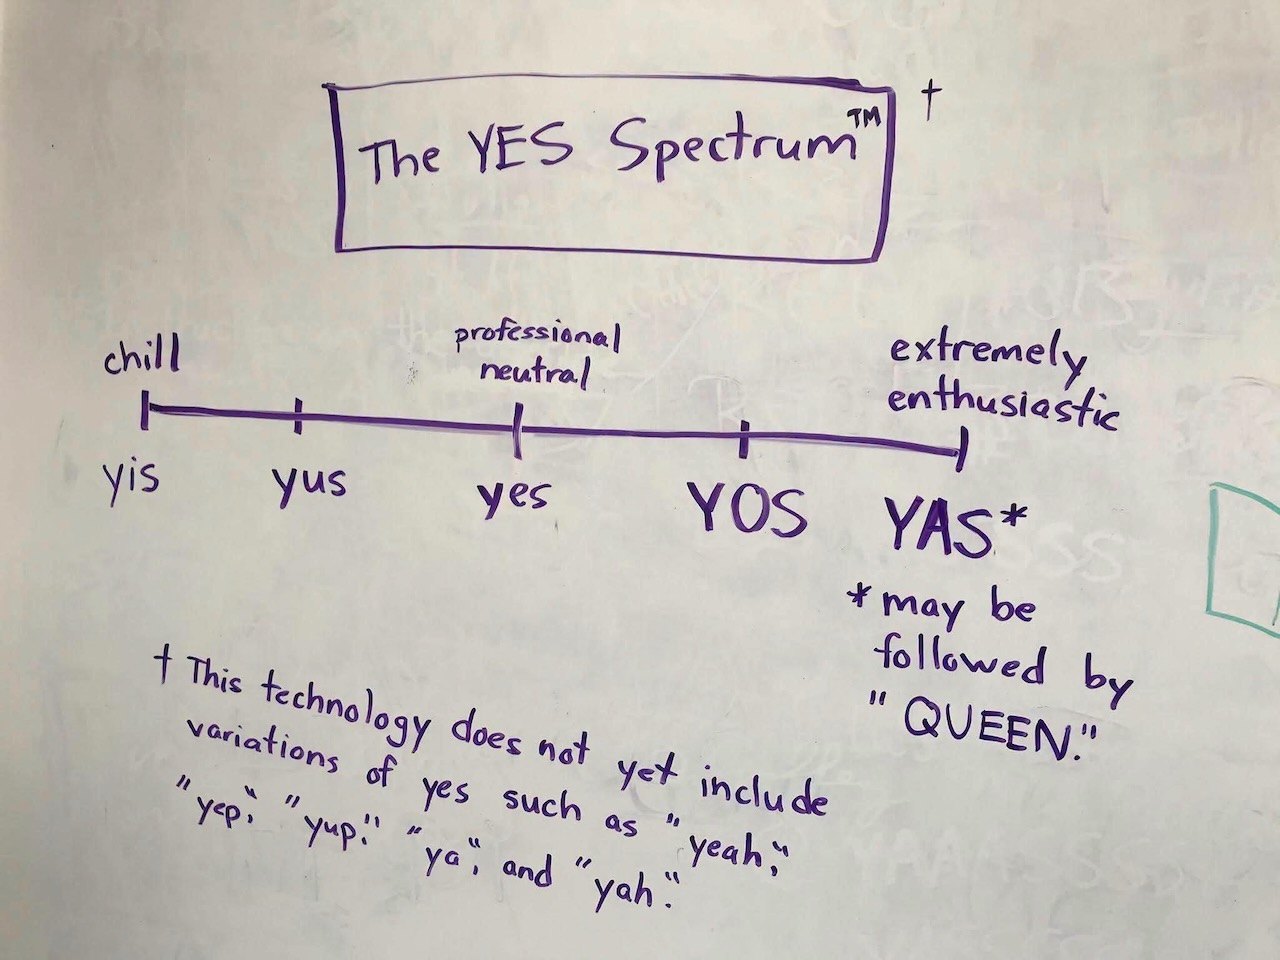 The YES Spectrum™ †
chill
professional
neutral
extremely
enthusiastic
yis yus yes YOS YAS*
*may be
followed by
"QUEEN."
† This technology does not yet include
variations of yes such as "yeah,"
"yep," "yup." "ya", and "yah."